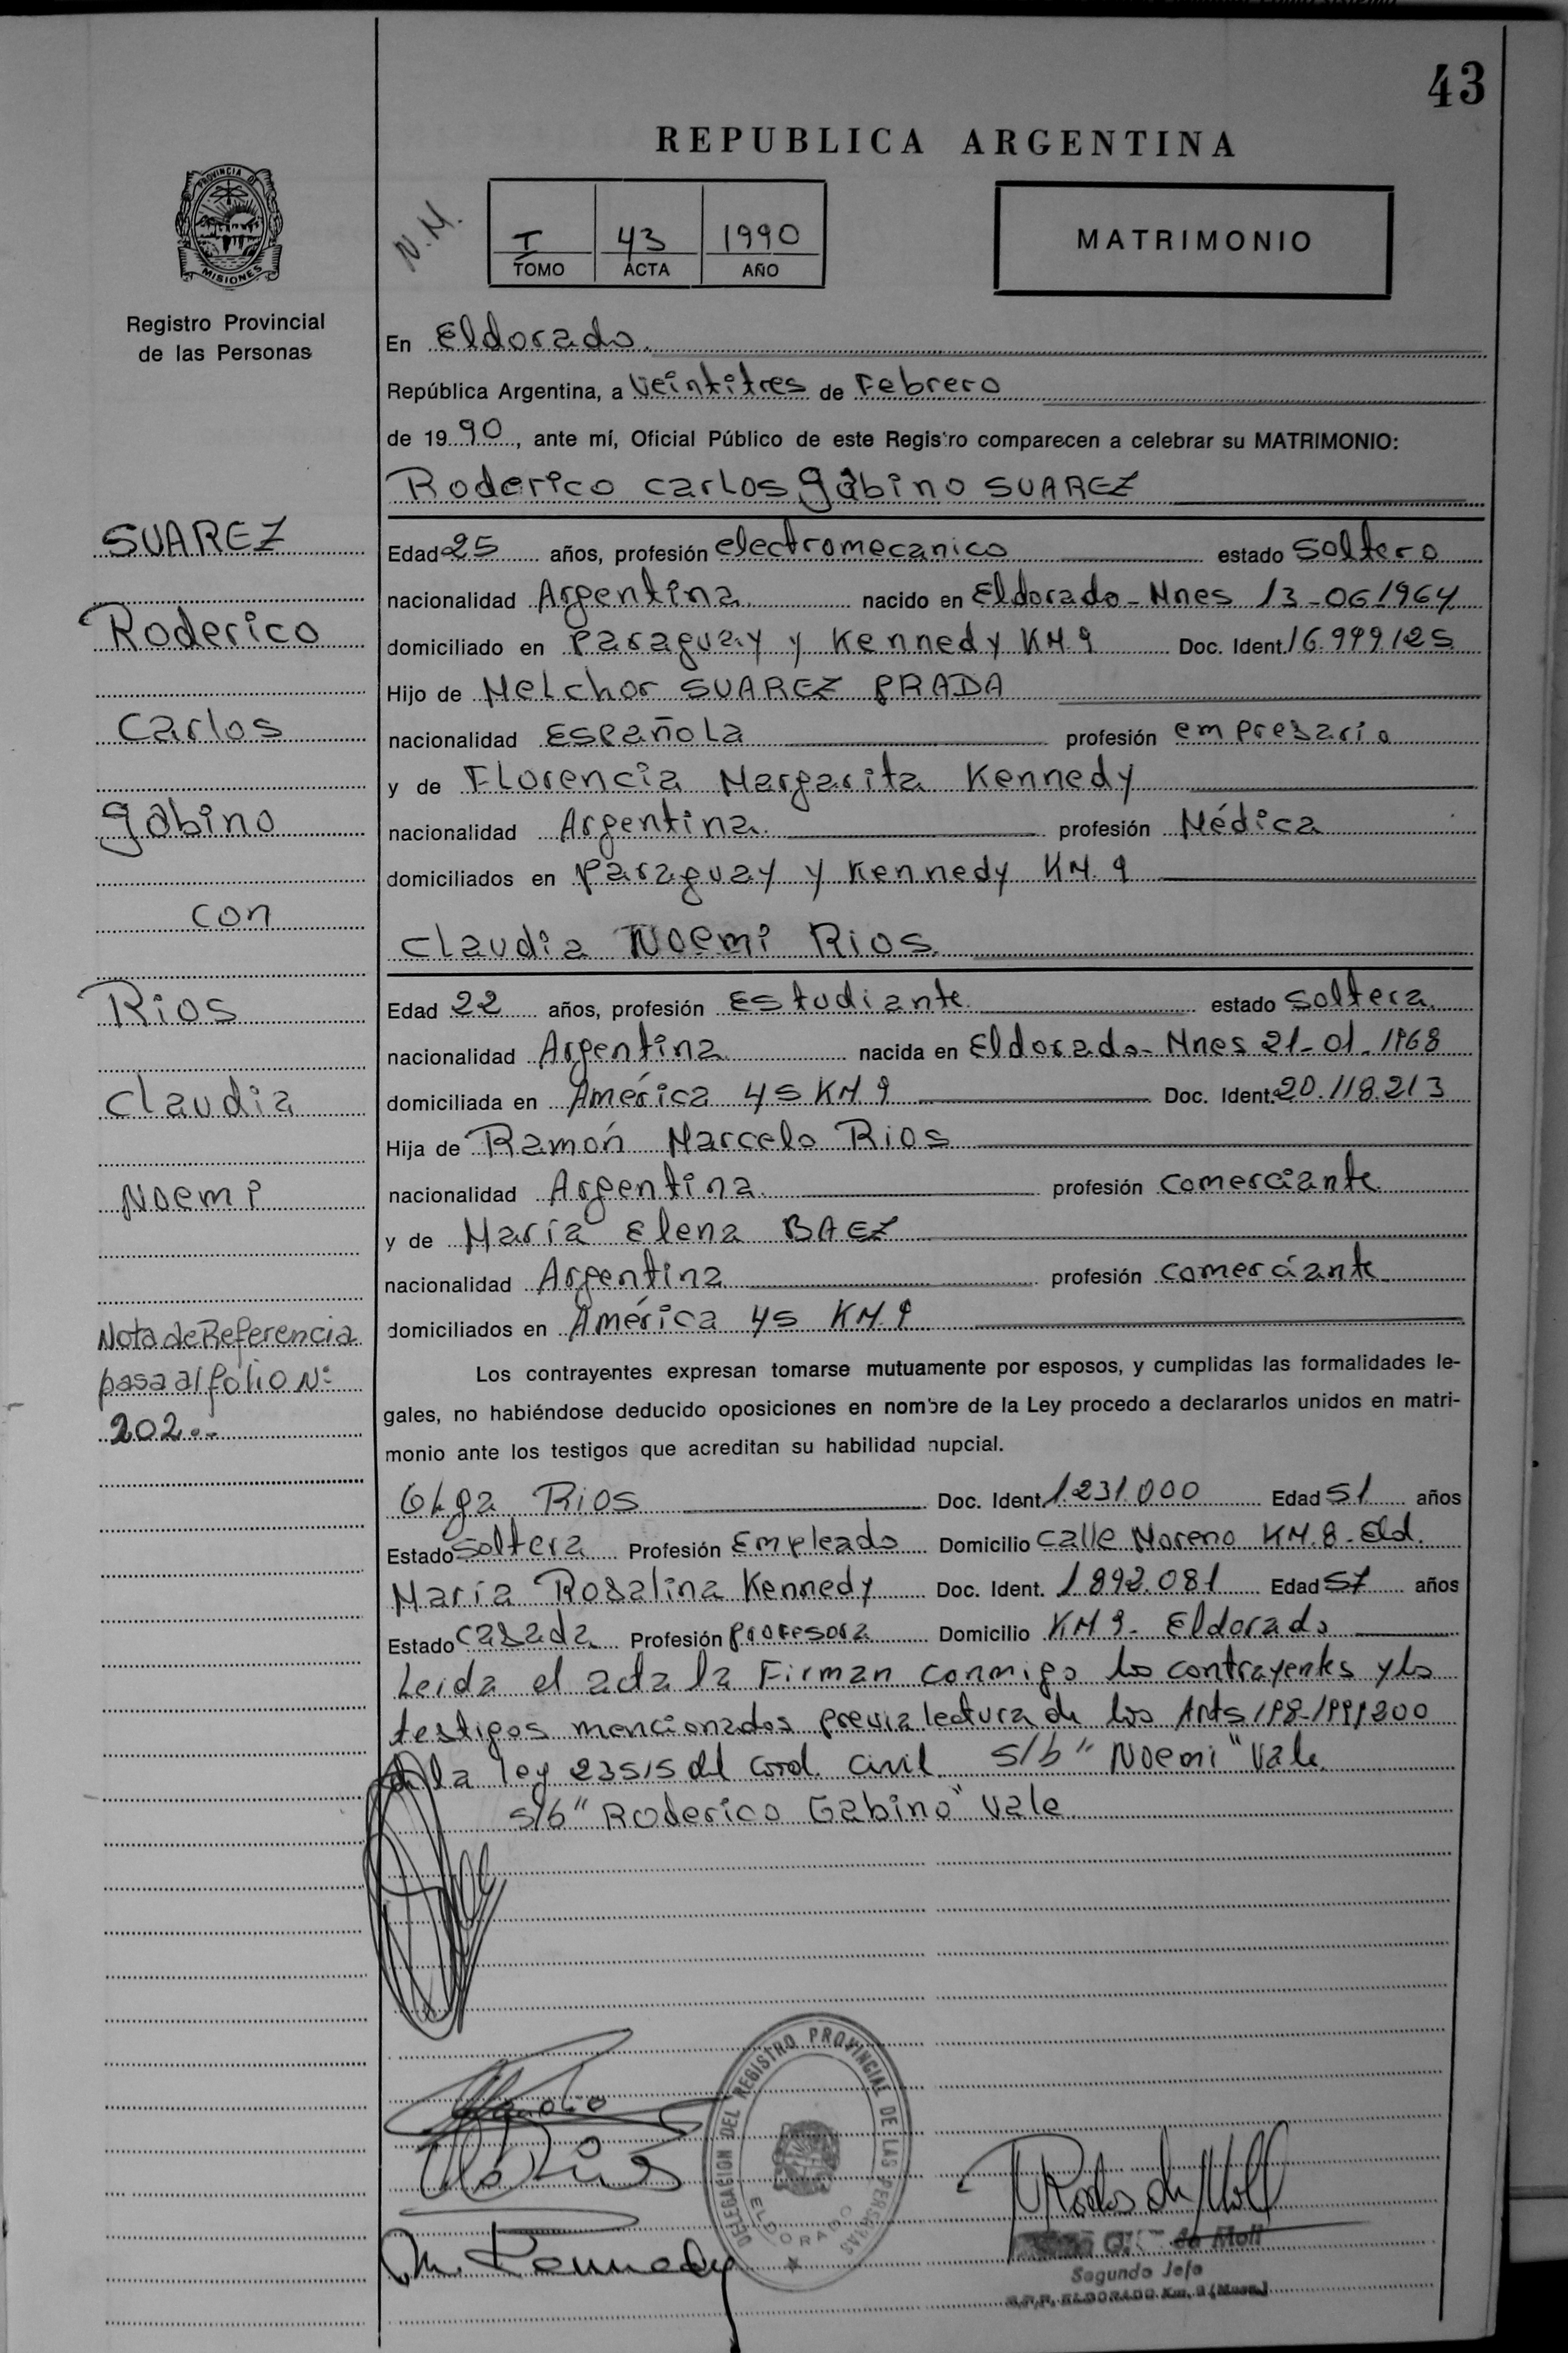 43
REPUBLICA ARGENTINA
PROVINCIA DE
MISIONES
N.M.
I 43 1990
TOMO ACTA AÑO
MATRIMONIO
Registro Provincial
de las Personas
En Eldorado.
República Argentina, a Veintitres de Febrero
de 19 90, ante mí, Oficial Público de este Registro comparecen a celebrar su MATRIMONIO:
Roderico Carlos Gabino SUAREZ
Edad 25 años, profesión electromecanico estado Soltero
nacionalidad Argentina. nacido en Eldorado - Mnes 13-06-1964
domiciliado en Paraguay y Kennedy KM. 9 Doc. Ident. 16.999.125
Hijo de Melchor SUAREZ PRADA
nacionalidad Española profesión empresario
y de Florencia Margarita Kennedy
nacionalidad Argentina. profesión Médica
domiciliados en Paraguay y Kennedy KM. 9
Claudia Noemi Rios.
Edad 22 años, profesión Estudiante. estado Soltera.
nacionalidad Argentina nacida en Eldorado - Mnes 21-01-1968
domiciliada en América 45 KM 9 Doc. Ident. 20.118.213
Hija de Ramón Marcelo Rios
nacionalidad Argentina. profesión comerciante
y de María Elena BAEZ
nacionalidad Argentina profesión comerciante
domiciliados en América 45 KM. 9
Los contrayentes expresan tomarse mutuamente por esposos, y cumplidas las formalidades le-
gales, no habiéndose deducido oposiciones en nombre de la Ley procedo a declararlos unidos en matri-
monio ante los testigos que acreditan su habilidad nupcial.
Olga Rios Doc. Ident. 1.231.000 Edad 51 años
Estado Soltera Profesión Empleado Domicilio Calle Moreno KM. 8 - Eld.
María Rosalina Kennedy Doc. Ident. 1.892.081 Edad 57 años
Estado casada Profesión profesora Domicilio KM 9 - Eldorado
Leida el acta la Firman conmigo los contrayentes y los
testigos mencionados previa lectura de los Arts 198-199 y 200
de la ley 23515 del Cod. Civil. s/b "Noemi" Vale.
s/b "Roderico Gabino" Vale
SUAREZ
Roderico
Carlos
Gabino
con
Rios
Claudia
Noemi
Nota de Referencia
pasa al folio Nº
202
DELEGACION DEL REGISTRO PROVINCIAL DE LAS PERSONAS
ELDORADO
M. Kennedy
de Moll
Segundo Jefe
R.P.P. ELDORADO Km. 9 (Mnes.)